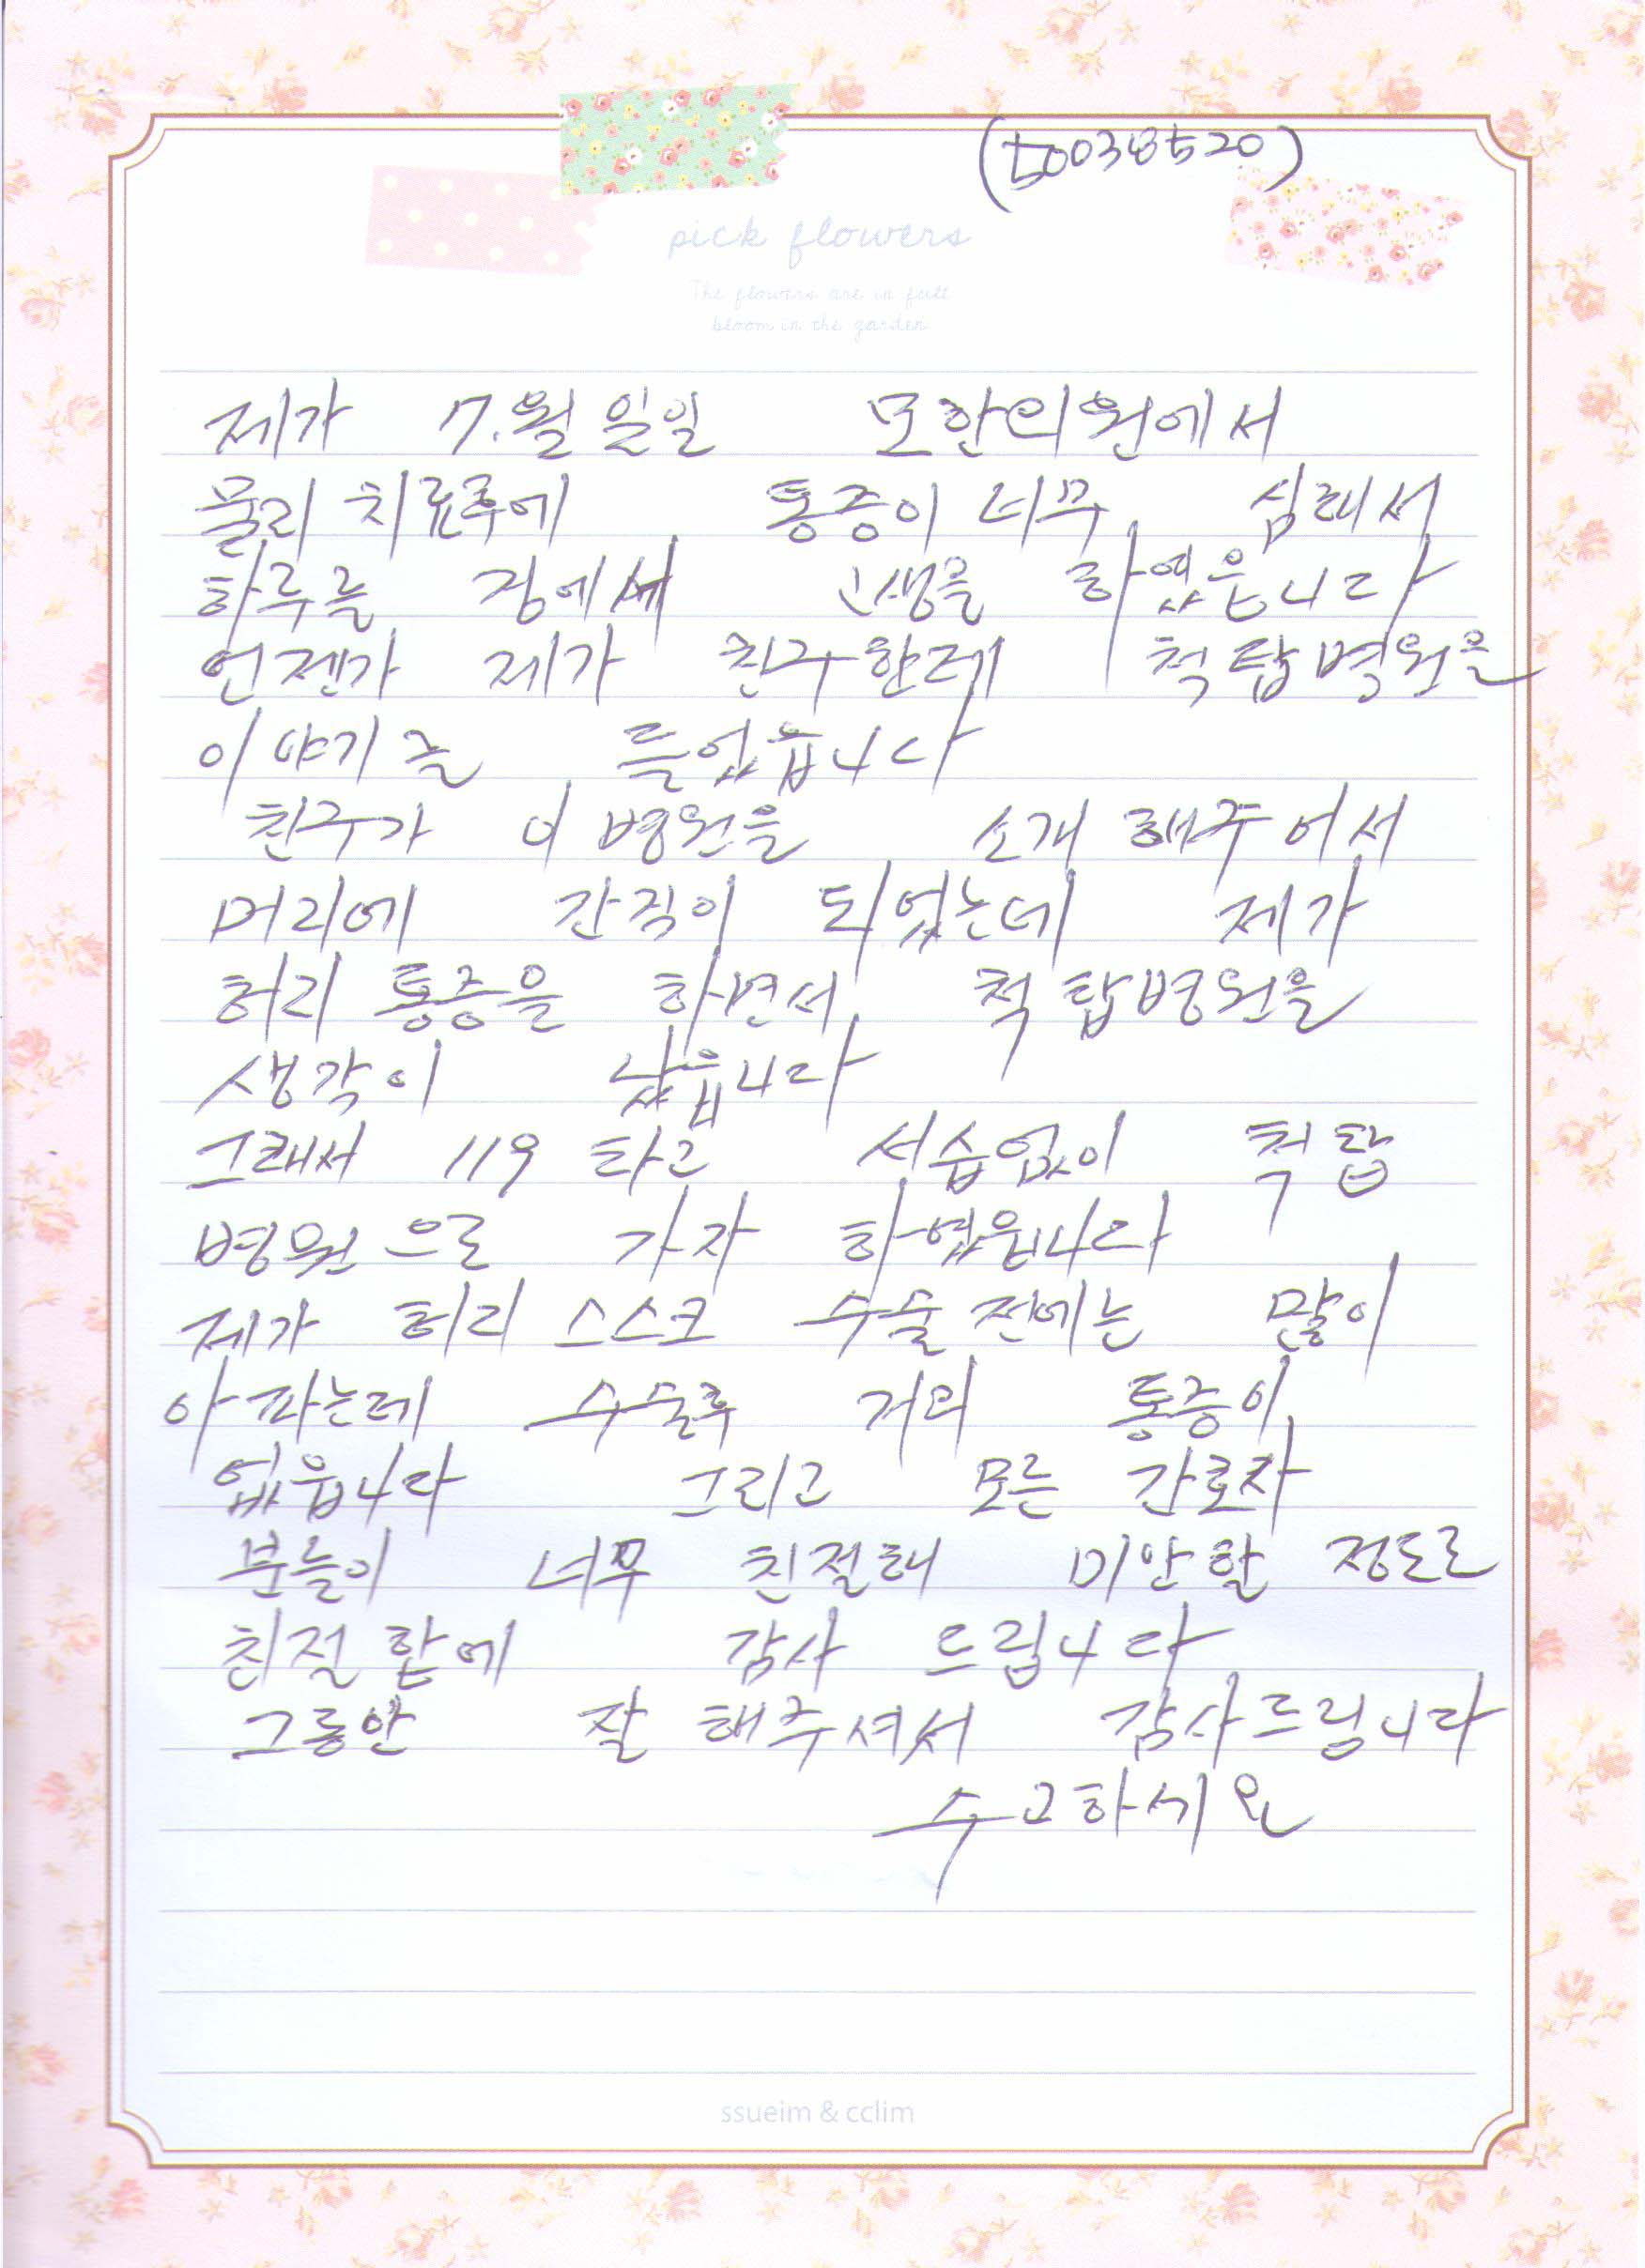 (50038520)
pick flowers
The flowers are in full
bloom in the garden
제가 7.월 일일 모한의원에서
물리 치료후에 통증이 너무 심해서
하루를 집에서 고생을 하였읍니다
언젠가 제가 친구한테 척탑병원을
이야기를 들었습니다
친구가 이 병원을 소개 해주어서
머리에 간직이 되었는데 제가
허리 통증을 하면서 척탑병원을
생각이 났읍니다
그래서 119 타고 서슴없이 척탑
병원으로 가자 하였읍니다
제가 허리 스스크 수술 전에는 많이
아파는데 수술후 거의 통증이
없읍니다 그리고 모든 간호사
분들이 너무 친절해 미안할 정도로
친절함에 감사 드립니다
그동안 잘 해주셔서 감사드립니다
수고하세요
ssueim & cclim